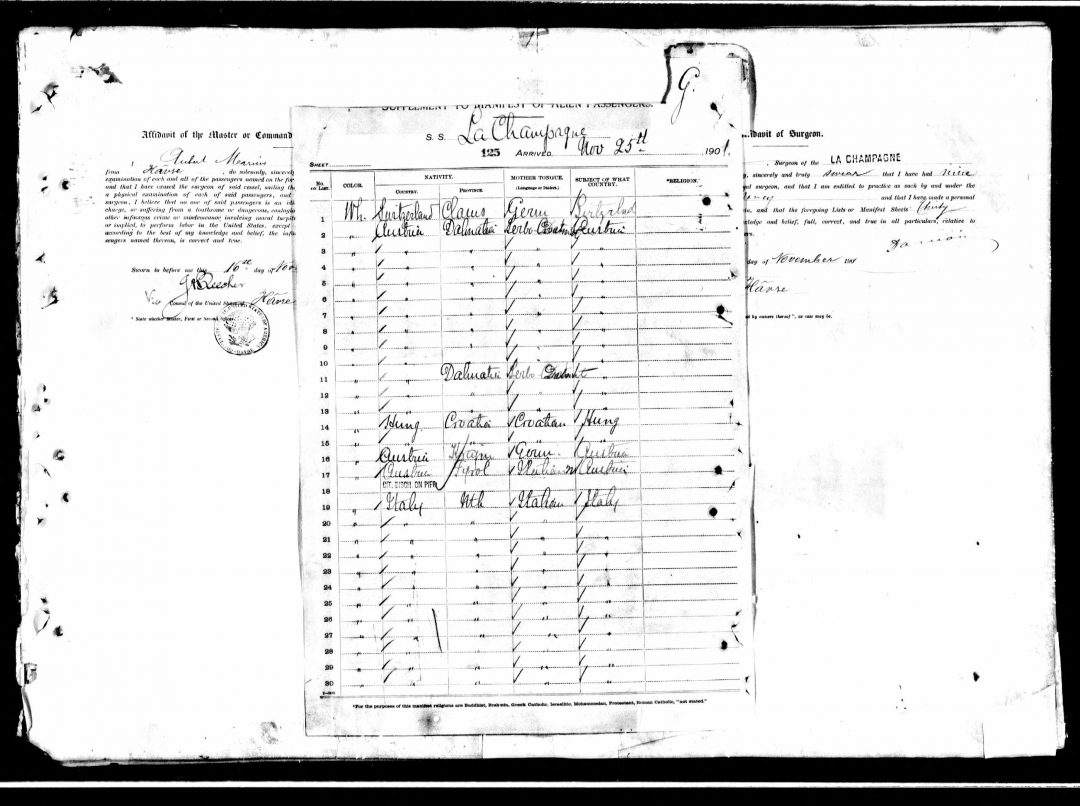 G.
SUPPLEMENT TO MANIFEST OF ALIEN PASSENGERS.
S. S. La Champagne
125 ARRIVED, Nov 25th 1901.
SHEET
No. ON LIST. COLOR. NATIVITY. MOTHER TONGUE. (Language or Dialect.) SUBJECT OF WHAT COUNTRY. *RELIGION.
COUNTRY. PROVINCE.
Wh. Switzerland Germ
2 Austria Dalmatia Serbo Austria
3 " " " " "
4 " " " " "
5 " " " " "
6 " " " " "
7 " " " " "
8 " " " " "
9 " " " " "
10 " " " " "
11 " " Dalmatia Serbo "
12 " " " " "
13 " " " " "
14 " Hung Croatia Croatian Hung
15 " " " " "
16 " Austria Germ. Austria
17 " Austria Tyrol Italian Austria
ON PIER
18
19 " Italy Nth Italian Italy
20 " " " " "
21 " " " " "
22 " " " " "
23 " " " " "
24 " " " " "
25 " " " " "
26 " " " " "
27 " " " " "
28 " " " " "
29 " " " " "
30 " " " " "
*For the purposes of this manifest religions are Buddhist, Brahmin, Greek Catholic, Israelitic, Mohammedan, Protestant, Roman Catholic, "not stated."
Affidavit of the Master or Command
I
from Havre, do solemnly, sincerely
examination of each and all of the passengers named on the for
and that I have caused the surgeon of said vessel, sailing the
a physical examination of each of said passengers, and
surgeon, I believe that no one of said passengers is an idi
charge, or suffering from a loathsome or dangerous, contagio
other infamous crime or misdemeanor involving moral turpit
or implied, to perform labor in the United States, except
according to the best of my knowledge and belief, the info
sengers named therein, is correct and true.
Sworn to before me this 16th day of Nov
Consul of the United States Havre
* State whether Master, First or Second
davit of Surgeon.
Surgeon of the LA CHAMPAGNE
, sincerely and truly swear that I have had nine
and surgeon, and that I am entitled to practice as such by and under the
and that I have made a personal
, and that the foregoing Lists or Manifest Sheets
ledge and belief, full, correct, and true in all particulars, relative to
day of November 1901
Havre
by owners thereof", as case may be.